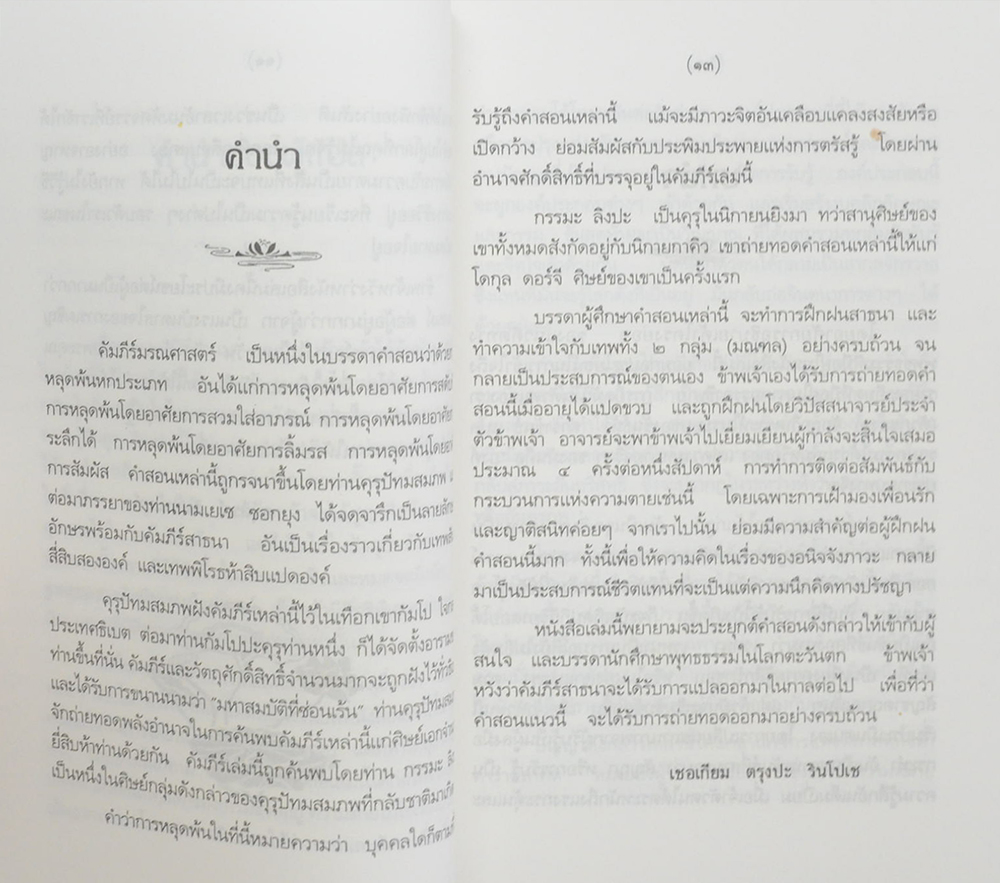 คำนำ
คัมภีร์มรณศาสตร์ เป็นหนึ่งในบรรดาคำสอนว่าด้วย
หลุดพ้นหกประเภท อันได้แก่การหลุดพ้นโดยอาศัยการสดับ
การหลุดพ้นโดยอาศัยการสวมใส่อาภรณ์ การหลุดพ้นโดยอาศัย
ระลึกได้ การหลุดพ้นโดยอาศัยการลิ้มรส การหลุดพ้นโดย
การสัมผัส คำสอนเหล่านี้ถูกรจนาขึ้นโดยท่านคุรุปัทมสมภพ
ต่อมาภรรยาของท่านนามเยเช ซอกยุง ได้จดจารึกเป็นลายลัก
อักษรพร้อมกับคัมภีร์สาธนา อันเป็นเรื่องราวเกี่ยวกับเทพ
สี่สิบสององค์ และเทพพิโรธห้าสิบแปดองค์
คุรุปัทมสมภพฝังคัมภีร์เหล่านี้ไว้ในเทือกเขากัมโป
ประเทศธิเบต ต่อมาท่านกัมโปปะคุรุท่านหนึ่ง ก็ได้จัดตั้งอาราม
ท่านขึ้นที่นั่น คัมภีร์และวัตถุศักดิ์สิทธิ์จำนวนมากจะถูกฝังไว้
และได้รับการขนานนามว่า "มหาสมบัติที่ซ่อนเร้น" ท่านคุรุปัทมสม
จักถ่ายทอดพลังอำนาจในการค้นพบคัมภีร์เหล่านี้แก่ศิษย์เอก
ยี่สิบห้าท่านด้วยกัน คัมภีร์เล่มนี้ถูกค้นพบโดยท่าน กรรมะ
เป็นหนึ่งในศิษย์กลุ่มดังกล่าวของคุรุปัทมสมภพที่กลับชาติมา
คำว่าการหลุดพ้นในที่นี้หมายความว่า บุคคลใดก็ตาม
(๑๓)
รับรู้ถึงคำสอนเหล่านี้ แม้จะมีภาวะจิตอันเคลือบแคลงสงสัยหรือ
เปิดกว้าง ย่อมสัมผัสกับประพิมประพายแห่งการตรัสรู้ โดยผ่าน
อำนาจศักดิ์สิทธิ์ที่บรรจุอยู่ในคัมภีร์เล่มนี้
กรรมะ ลิงปะ เป็นคุรุในนิกายนยิงมา ทว่าสานุศิษย์ของ
เขาทั้งหมดสังกัดอยู่กับนิกายกาคิว เขาถ่ายทอดคำสอนเหล่านี้ให้แก่
โดกุล ดอร์จี ศิษย์ของเขาเป็นครั้งแรก
บรรดาผู้ศึกษาคำสอนเหล่านี้ จะทำการฝึกฝนสาธนา และ
ทำความเข้าใจกับเทพทั้ง ๒ กลุ่ม (มณฑล) อย่างครบถ้วน จน
กลายเป็นประสบการณ์ของตนเอง ข้าพเจ้าเองได้รับการถ่ายทอดคำ
สอนนี้เมื่ออายุได้แปดขวบ และถูกฝึกฝนโดยวิปัสสนาจารย์ประจำ
ตัวข้าพเจ้า อาจารย์จะพาข้าพเจ้าไปเยี่ยมเยียนผู้กำลังจะสิ้นใจเสมอ
ประมาณ ๔ ครั้งต่อหนึ่งสัปดาห์ การทำการติดต่อสัมพันธ์กับ
กระบวนการแห่งความตายเช่นนี้ โดยเฉพาะการเฝ้ามองเพื่อนรัก
และญาติสนิทค่อยๆ จากเราไปนั้น ย่อมมีความสำคัญต่อผู้ฝึกฝน
คำสอนนี้มาก ทั้งนี้เพื่อให้ความคิดในเรื่องของอนิจจังภาวะ กลาย
มาเป็นประสบการณ์ชีวิตแทนที่จะเป็นแต่ความนึกคิดทางปรัชญา
หนังสือเล่มนี้พยายามจะประยุกต์คำสอนดังกล่าวให้เข้ากับผู้
สนใจ และบรรดานักศึกษาพุทธธรรมในโลกตะวันตก ข้าพเจ้า
หวังว่าคัมภีร์สาธนาจะได้รับการแปลออกมาในกาลต่อไป เพื่อที่ว่า
คำสอนแนวนี้ จะได้รับการถ่ายทอดออกมาอย่างครบถ้วน
เชอเกียม ตรุงปะ รินโปเช